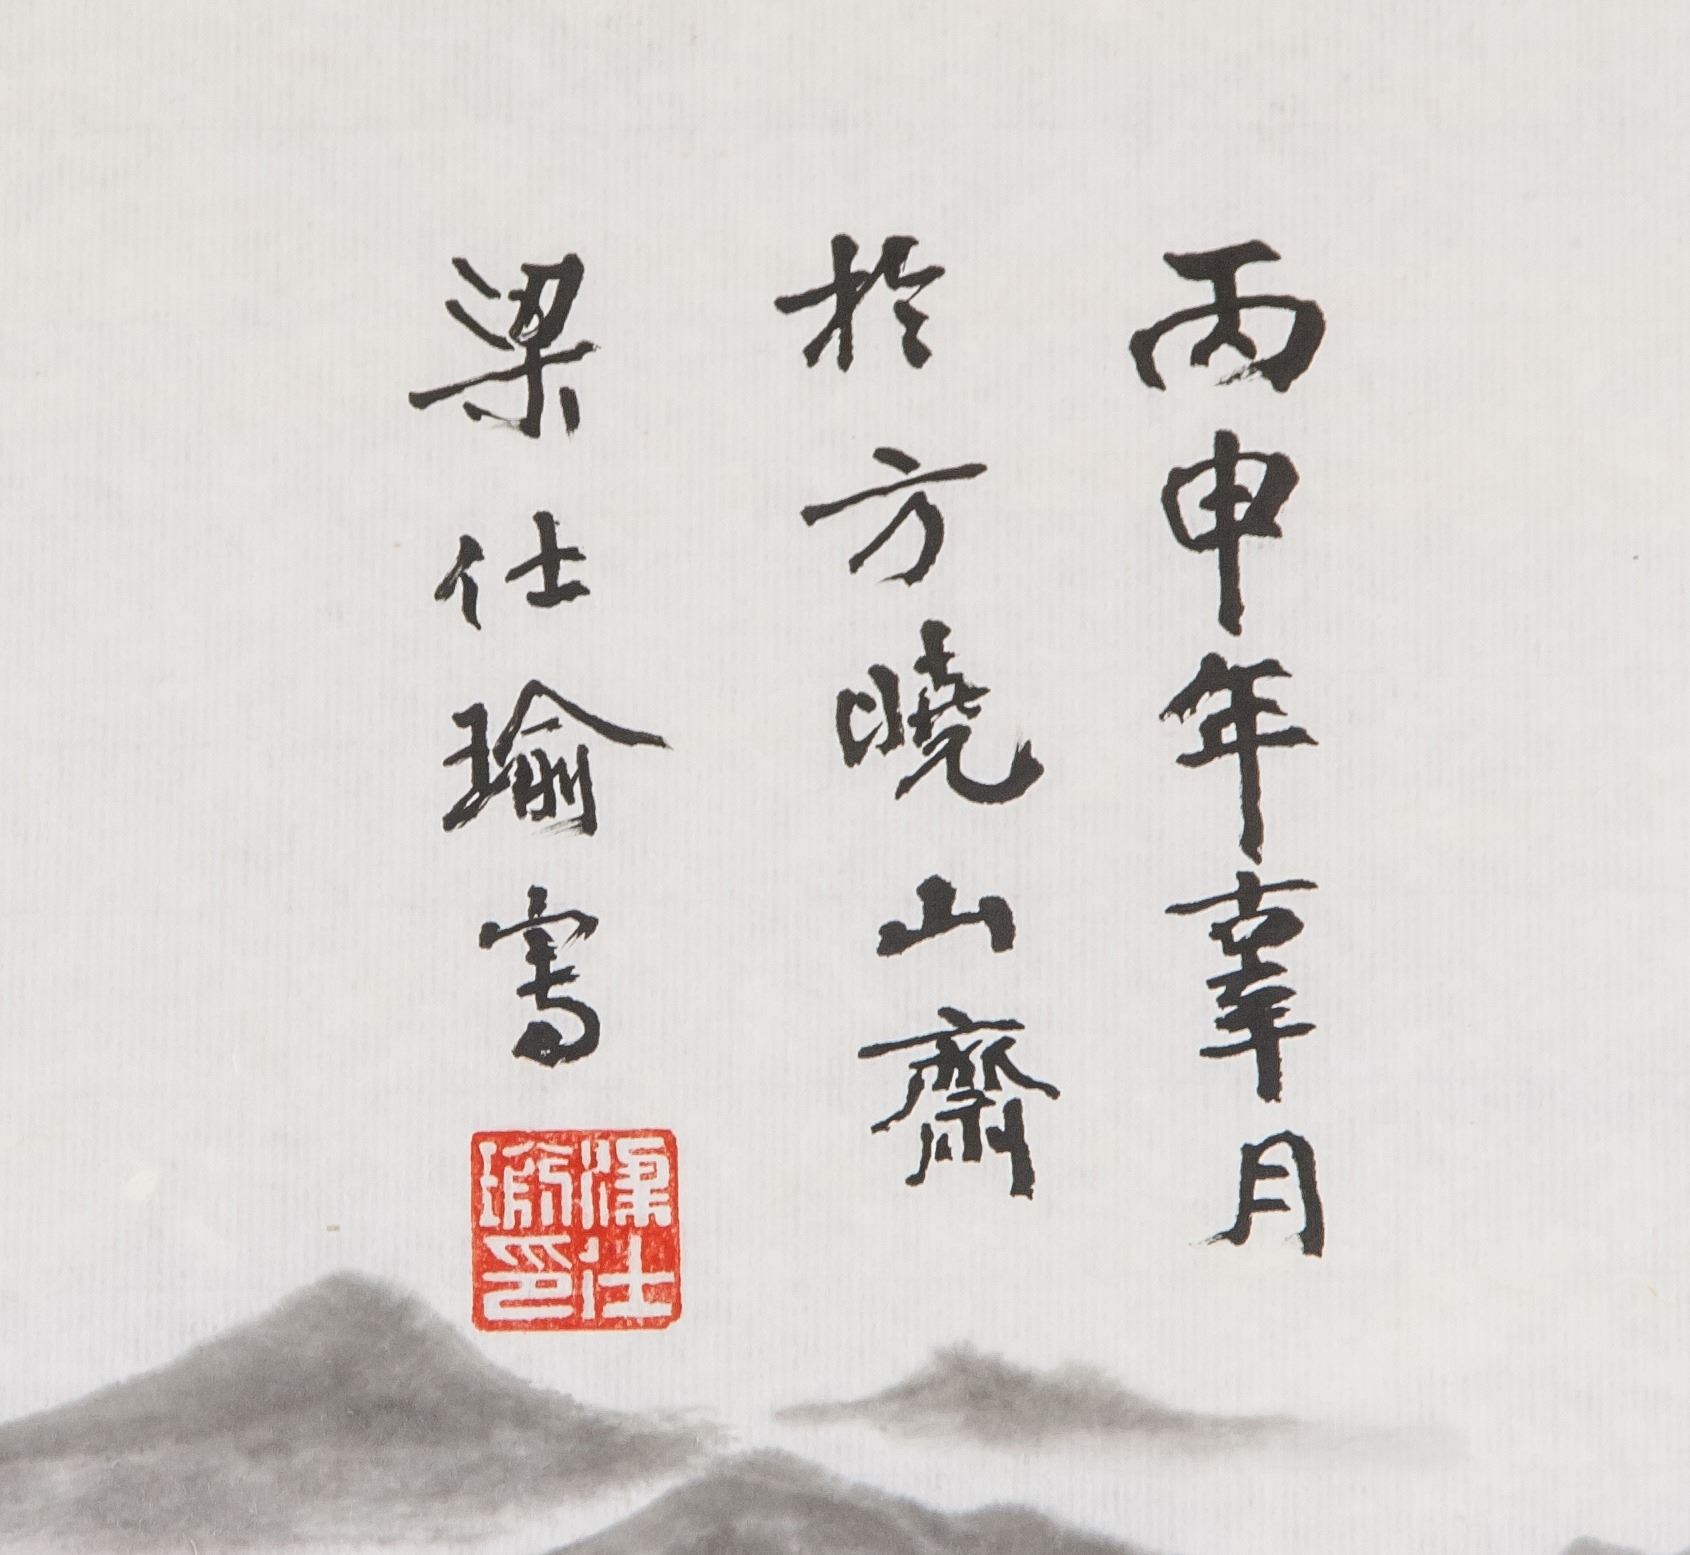 丙申年辜月
於方曉山齋
梁仕瑜寫
梁仕
瑜印